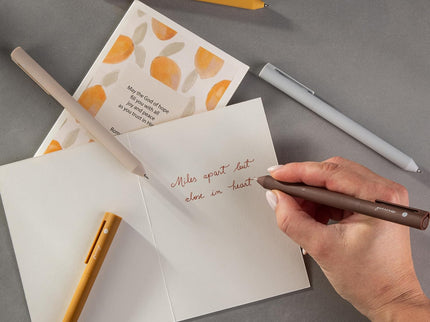 May the God of hope
fill you with all
joy and peace
as you trust in Him
Miles apart but
close in heart